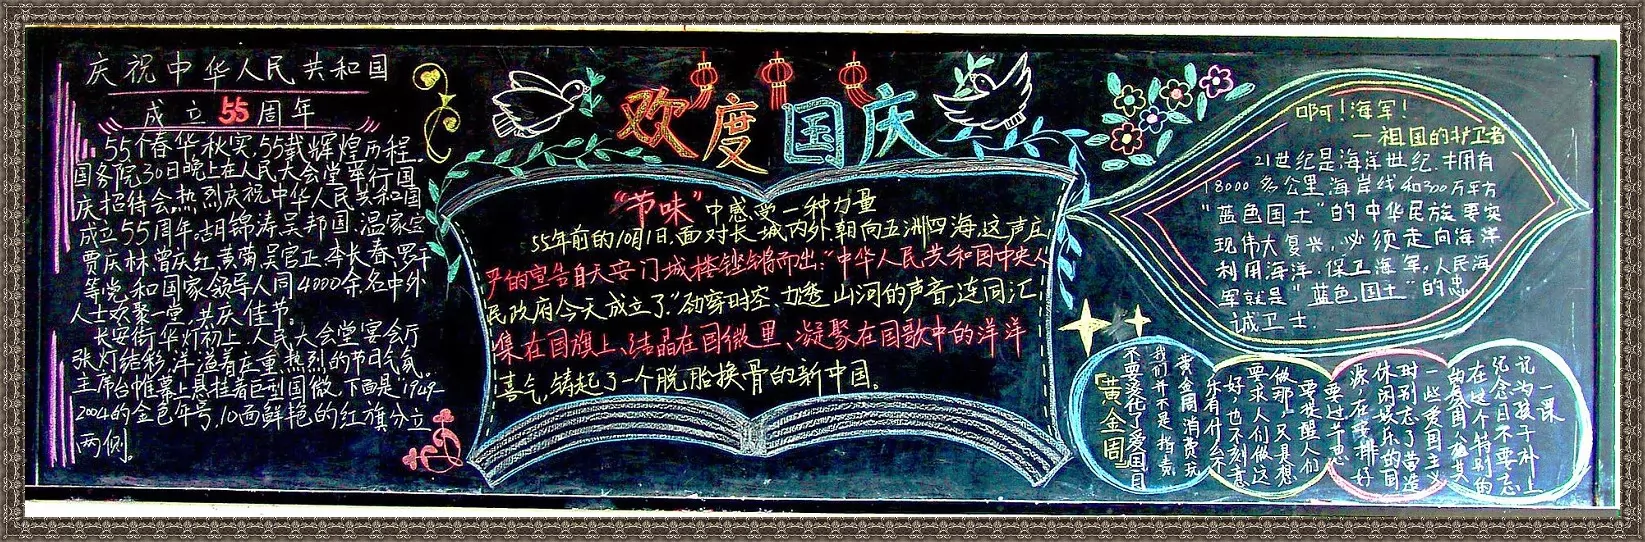 庆祝中华人民共和国
成立55周年
55个春华秋实,55载辉煌历程.
国务院30日晚上在人民大会堂举行国
庆招待会热烈庆祝中华人民共和国
成立55周年,胡锦涛,吴邦国,温家宝
贾庆林,曾庆红,黄菊,吴官正,李长春,罗干
等党和国家领导人同4000余名中外
人士欢聚一堂,共庆佳节。
长安街华灯初上,人民大会堂宴会厅
张灯结彩,洋溢着庄重热烈的节日气氛。
主席台帷幕上悬挂着巨型国徽,下面是"1949-
2004的金色年号,10面鲜艳的红旗分立
两侧。
欢度国庆
"节味"中感受一种力量
55年前的10月1日,面对长城内外,朝向五洲四海,这声庄
严的宣告自天安门城楼铿锵而出:"中华人民共和国中央人
民政府今天成立了"的穿时空、力透山河的声音,连同汇
集在国旗上、结晶在国徽里、凝聚在国歌中的洋洋
喜气,铸起了一个脱胎换骨的新中国。
啊!海军!
—祖国的护卫者
21世纪是海洋世纪.拥有
18000多公里海岸线和300万平方
"蓝色国土"的中华民族要实
现伟大复兴,必须走向海洋
利用海洋.保卫海军.人民海
军就是"蓝色国土"的忠
诚卫士.
"黄金周"
黄金周消费玩
我们并不是指责
不要淡化了爱国日
乐有什么不
好,也不刻意
要求人们做这
做那,只是想
要提醒人们
要过节思
源,在安排好
休闲娱乐的同
时别忘了营造
一些爱国主义
的氛围,尤其
在这个特别的
纪念日不要忘
记为孩子补上
一课